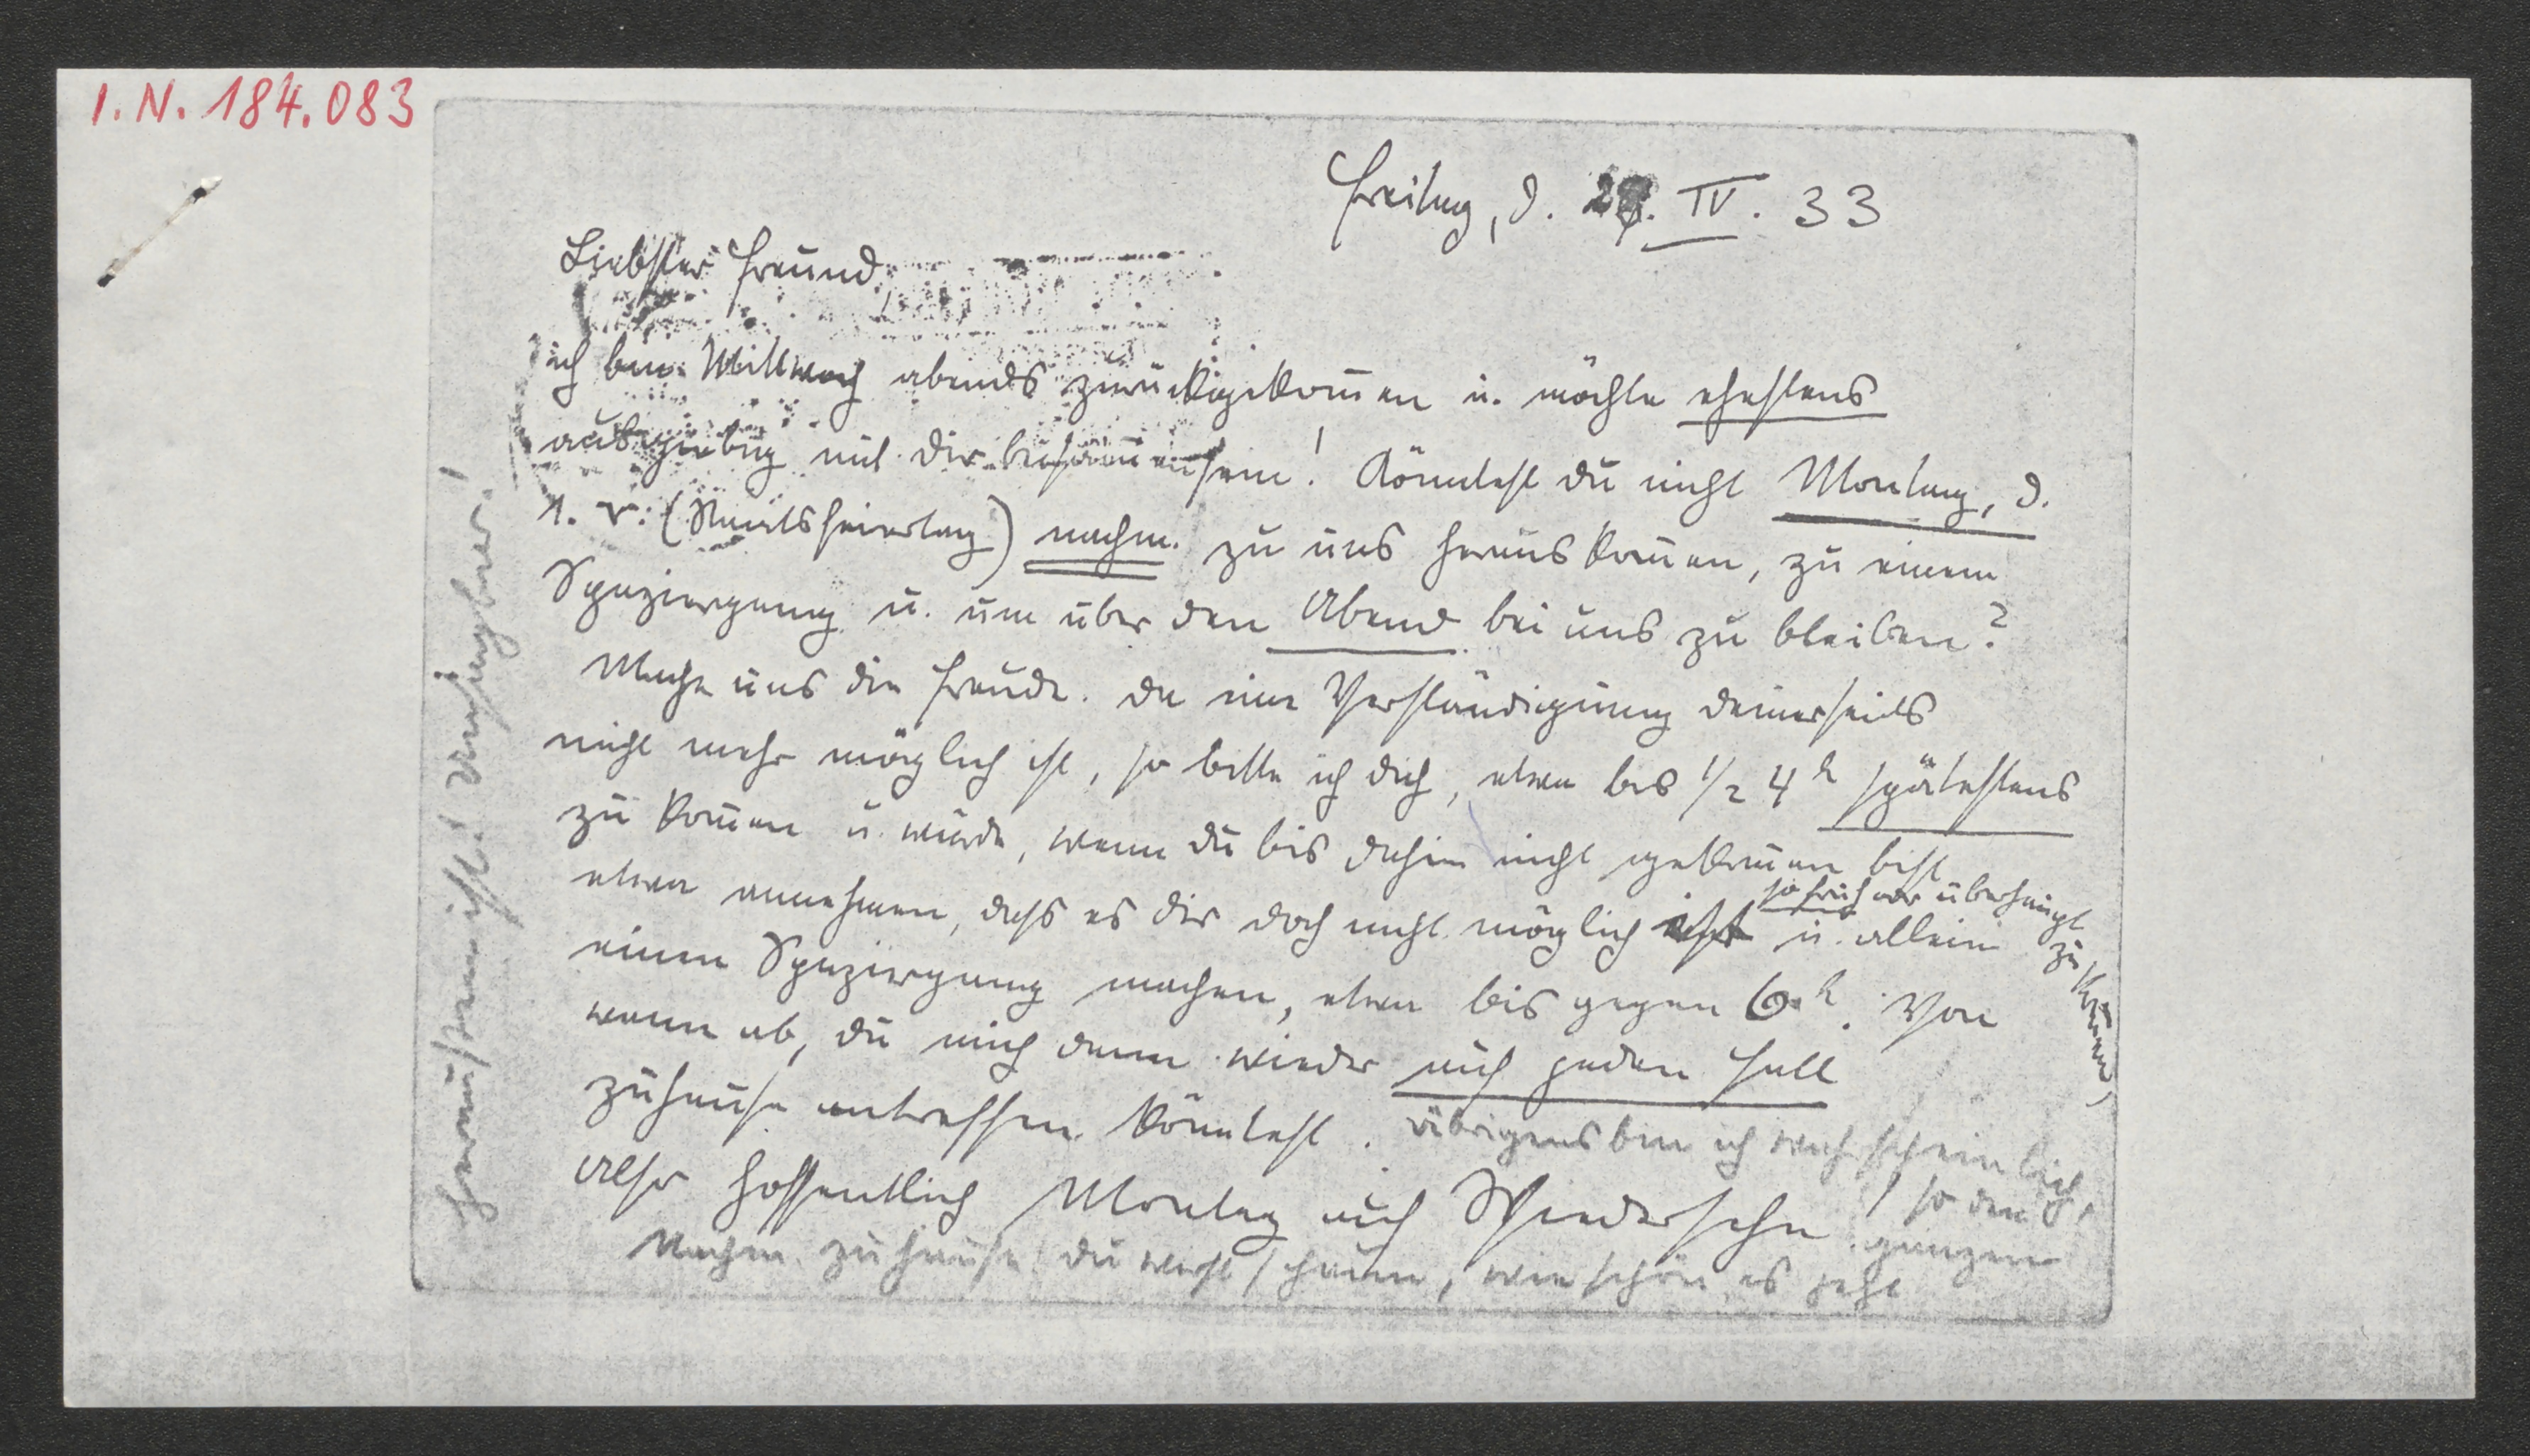 I. N. 184.083
Freitag, d. 28. IV. 33
Liebster Freund,
ich bin Mittwoch abends zurückgekom̅en u. möchte ehestens
ausgiebig mit dir beisam̅ensein! Könntest du nicht Montag, d.
1. V. (Staatsfeiertag) nachm. zu uns herauskom̅en, zu einem
Spaziergang u. um über den Abend bei uns zu bleiben?
Mache uns die Freude. Da eine Verständigung deinerseits
nicht mehr möglich ist, so bitte ich dich, etwa bis 1/2 4h spätestens
zu kom̅en u. würde, wenn du bis dahin nicht gekom̅en bist
etwa annehmen, dass es dir doch nicht möglich ist so früh oder überhaupt zu kom̅en, u. allein
einen Spaziergang machen, etwa bis gegen 6h. Von
wann ab, du mich dann wieder auf jeden Fall
zuhause antreffen könntest. Übrigens bin ich wahrscheinlich
Also hoffentlich Montag auf Wiedersehn!
ganzen
Nachm. zuhause, du wirst schauen, wie schön es jetzt
heraussen ist! Unsagbar!